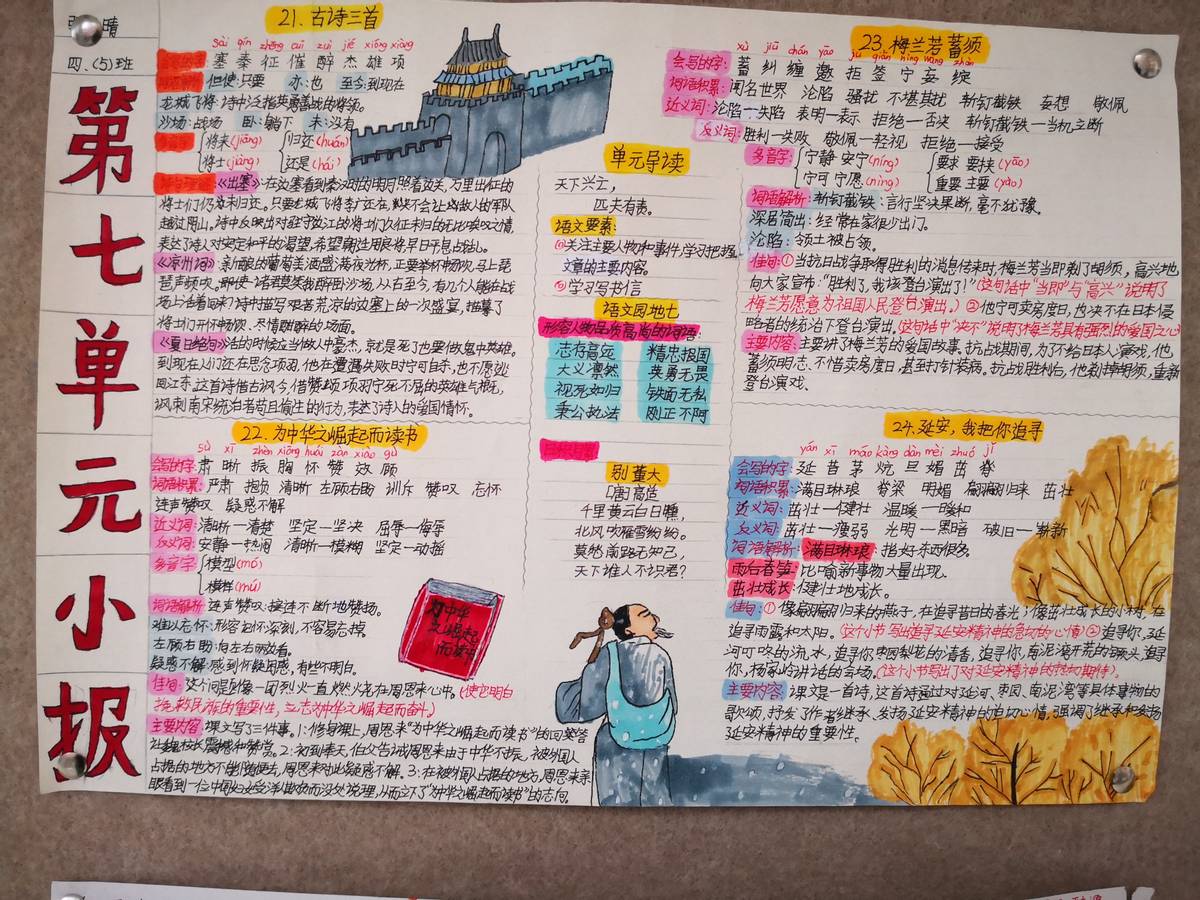 晴
四、(5)班
第七单元小报
21.古诗三首
sài qín zhēng cuī zuì jié xióng xiàng
塞 秦 征 催 醉 杰 雄 项
但使:只要 亦:也 至今:到现在
龙城飞将:诗中泛指英勇善战的将领。
沙场:战场 卧:躺下 未:没有
将来(jiāng) 归还(huán)
将士(jiàng) 还是(hái)
《出塞》:在边塞看到秦汉的明月照着边关,万里出征的
将士们仍没有归还。只要龙城飞将李广还在,就不会让
越过阴山。诗中反映出对驻守边疆的将士们久征未归的无比感叹之情,
表达了诗人对安定和平的渴望,希望朝廷用良将早日平息战乱。
《凉州词》:新酿的葡萄美酒盛满夜光杯,正要举杯畅饮,马上琵
琶声频吹。即使诸君莫笑我醉卧沙场,从古至今,有几个人能在战
场上活着回来?诗中描写艰苦荒凉的边塞上的一次盛宴,描摹了
将士们开怀畅饮、尽情酣醉的场面。
《夏日绝句》:活的时候应当做人中豪杰,就是死了也要做鬼中英雄。
到现在人们还在思念项羽,他在遭遇失败时宁可自杀,也不愿逃
回江东。这首诗借古讽今,借赞颂项羽宁死不屈的英雄气概,
讽刺南宋统治者苟且偷生的行为,表达了诗人的爱国情怀。
22.为中华之崛起而读书
sù xī zhèn xiōng huái zàn xiào gù
会写的字: 肃 晰 振 胸 怀 赞 效 顾
词语积累: 严肃 抱负 清晰 左顾右盼 训斥 赞叹 忘怀
连声赞叹 疑惑不解
近义词: 清晰—清楚 坚定—坚决 屈辱—侮辱
反义词: 安静—热闹 清晰—模糊 坚定—动摇
多音字 模型(mó)
模样(mú)
词语解析 连声赞叹:接连不断地赞扬。
难以忘怀:形容记忆深刻,不容易忘掉。
左顾右盼:向左右两边看。
疑惑不解:感到怀疑困惑,有些不明白。
佳句: 这个问题像一团烈火一直燃烧在周恩来心中。(使它明白
救民族的重要性,立志为中华之崛起而奋斗。)
主要内容: 课文写了三件事。1:修身课上,周恩来“为中华之崛起而读书”的回答
让魏校长震撼和赞赏。2:初到奉天,伯父告诫周恩来由于中华不振,被外国人
占据的地方不能随便去,周恩来对此疑惑不解。3:在被外国人占据的地方,周恩来亲
眼看到一位中国妇女受洋人欺负而没处说理,从而立下了“为中华之崛起而读书”的志向。
为中华
之崛起
而读书
单元导读
天下兴亡,
匹夫有责。
语文要素:
①关注主要人物和事件,学习把握
文章的主要内容。
②学习写书信
语文园地七
形容人物品质高尚的词语
志存高远 精忠报国
大义凛然 英勇无畏
视死如归 铁面无私
秉公执法 刚正不阿
日积月累
别董大
[唐]高适
千里黄云白日曛,
北风吹雁雪纷纷。
莫愁前路无知己,
天下谁人不识君?
23.梅兰芳蓄须
xù jiū chán yāo jù qiān nìng wàng zhàn
会写的字: 蓄 纠 缠 邀 拒 签 宁 妄 绽
词语积累: 闻名世界 沦陷 骚扰 不堪其扰 斩钉截铁 妄想 敬佩
近义词: 沦陷—失陷 表明—表示 拒绝—否决 斩钉截铁—当机立断
反义词: 胜利—失败 敬佩—轻视 拒绝—接受
多音字: 宁静 安宁(níng) 要求 要挟(yāo)
宁可 宁愿(nìng) 重要 主要(yào)
词语解析: 斩钉截铁:言行坚决果断,毫不犹豫。
深居简出:经常在家很少出门。
沦陷:领土被占领。
佳句:①当抗日战争取得胜利的消息传来时,梅兰芳当即剃了胡须,高兴地
向大家宣布:“胜利了,我该登台演出了!”(这句话中“当即”与“高兴”说明了
梅兰芳愿意为祖国人民登台演出。) ②他宁可卖房度日,也决不在日本侵
略者的统治下登台演出。(这句话中“决不”说明了梅兰芳具有强烈的爱国之心)
主要内容: 主要讲了梅兰芳的爱国故事。抗战期间,为了不给日本人演戏,他
蓄须明志、不惜卖房度日,甚至打针装病。抗战胜利后,他剃掉胡须,重新
登台演戏。
24.延安,我把你追寻
yán xī máo kàng dàn mèi zhuó jǐ
会写的字: 延 昔 茅 炕 旦 媚 茁 脊
词语积累: 满目琳琅 脊梁 明媚 翩翩归来 茁壮
近义词: 茁壮—健壮 温暖—暖和
反义词: 茁壮—瘦弱 光明—黑暗 破旧—崭新
词语解析: 满目琳琅:指好东西很多。
雨后春笋:比喻新事物大量出现。
茁壮成长:健壮地成长。
佳句:①像翩翩归来的燕子,在追寻昔日的春光;像茁壮成长的小树,在
追寻雨露和太阳。(这个小节写出追寻延安精神的急切的心情)②追寻你,延
河叮咚的流水,追寻你,枣园梨花的清香,追寻你,南泥湾开荒的镢头,追寻
你,杨家岭讲话的会场。(这个小节写出了对延安精神的热切期待)
主要内容: 课文是一首诗,这首诗通过对延河、枣园、南泥湾等具体事物的
歌颂,抒发了作者继承、发扬延安精神的迫切心情,强调了继承和发扬
延安精神的重要性。